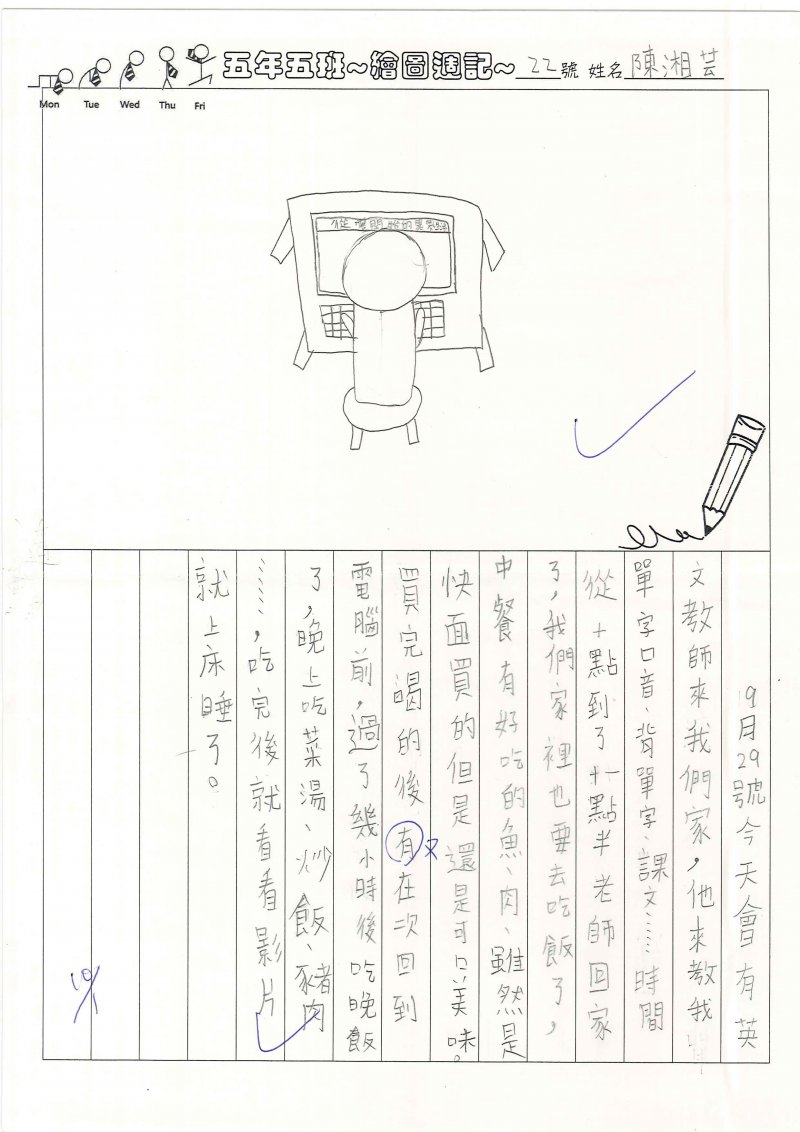 五年五班~繪圖週記~ 22號 姓名 陳湘芸
Mon Tue Wed Thu Fri
9月29號今天會有英
文教師來我們家，他來教我
單字口音、背單字、課文……時間
從十點到了十一點半老師回家
了，我們家裡也要去吃飯了，
中餐有好吃的魚、肉、雖然是
快面買的但是還是可口美味。
買完喝的後有在次回到
又
電腦前，過了幾小時後吃晚飯
了，晚上吃菜湯、炒飯、豬肉
……，吃完後就看看影片
就上床睡了。
10/1